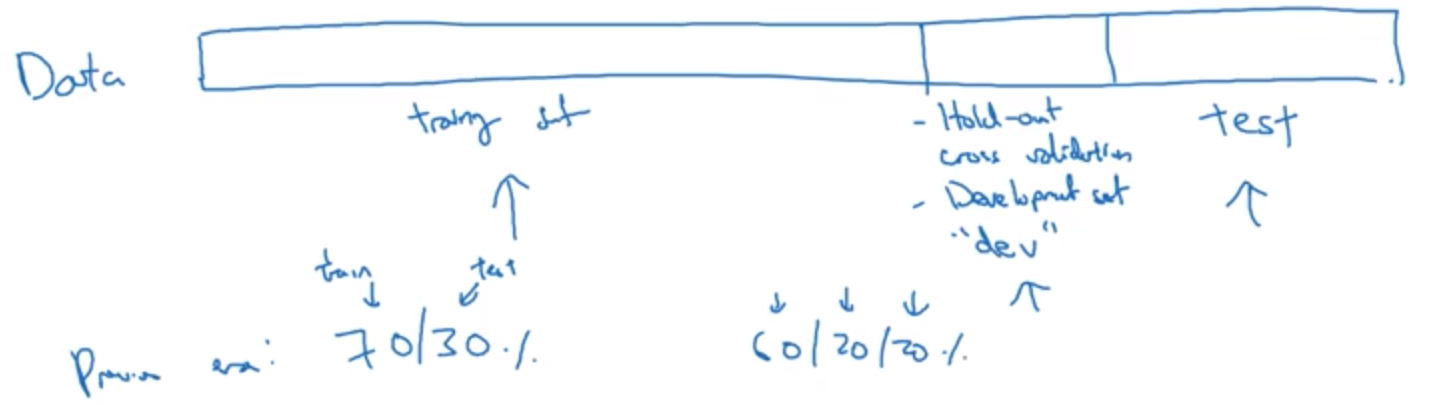 Data
training set
- Hold-out
cross validation
- Development set
"dev"
test
train
test
Previous era:
70/30%
60/20/20%